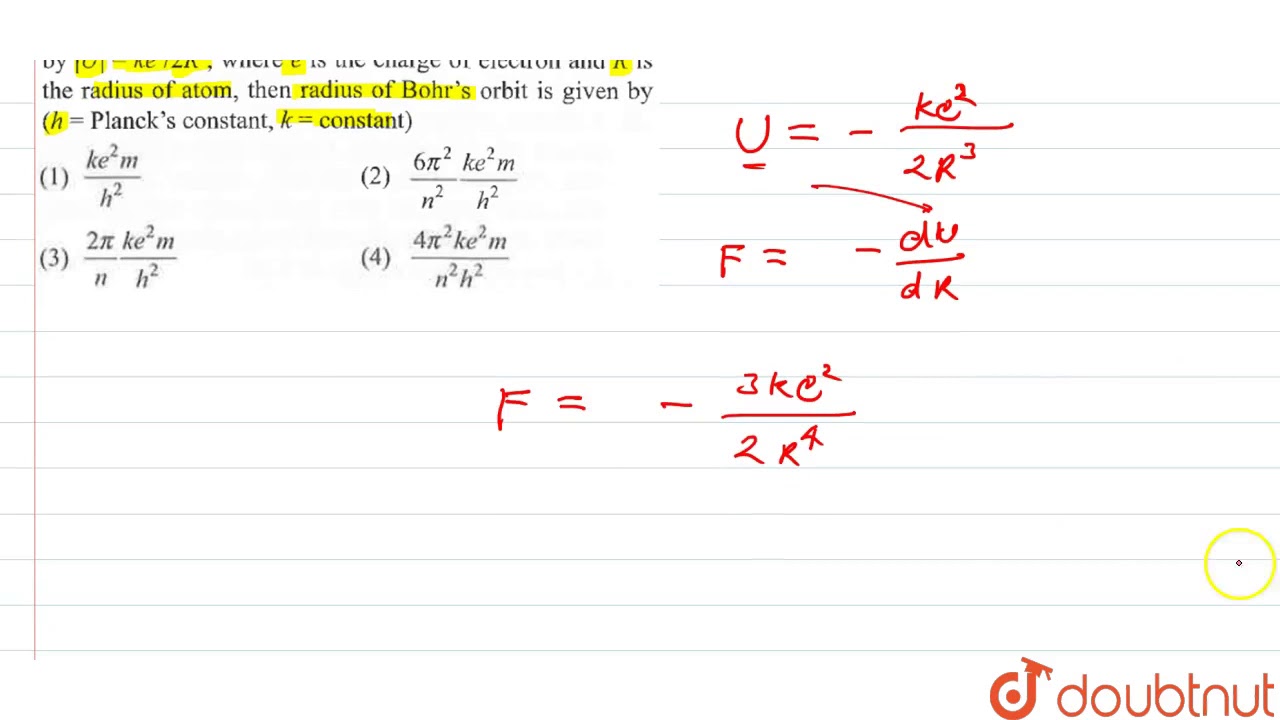 by |U| = ke²/2R³, where e is the charge of electron and R is
the radius of atom, then radius of Bohr's orbit is given by
(h = Planck's constant, k = constant)
(1) ke²m/h²
(2) 6π²/n² ke²m/h²
(3) 2π/n ke²m/h²
(4) 4π²ke²m/n²h²
U = - ke²/2R³
F = - dU/dR
F = - 3ke²/2R⁴
doubtnut